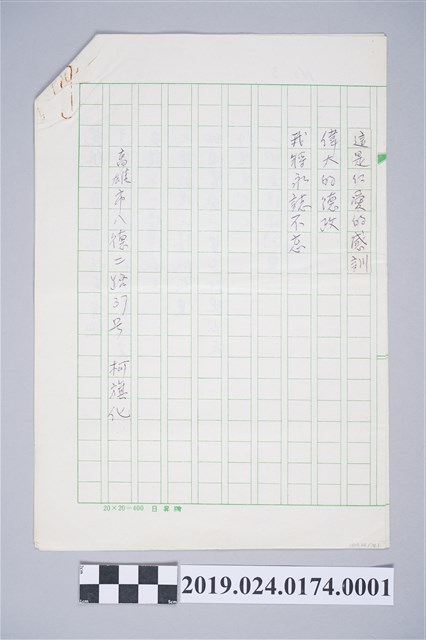 這是仁愛的感訓
偉大的德政
我將永誌不忘
高雄市八德二路37号 柯旗化
20×20=400 日星牌
2019.024.0174.0001